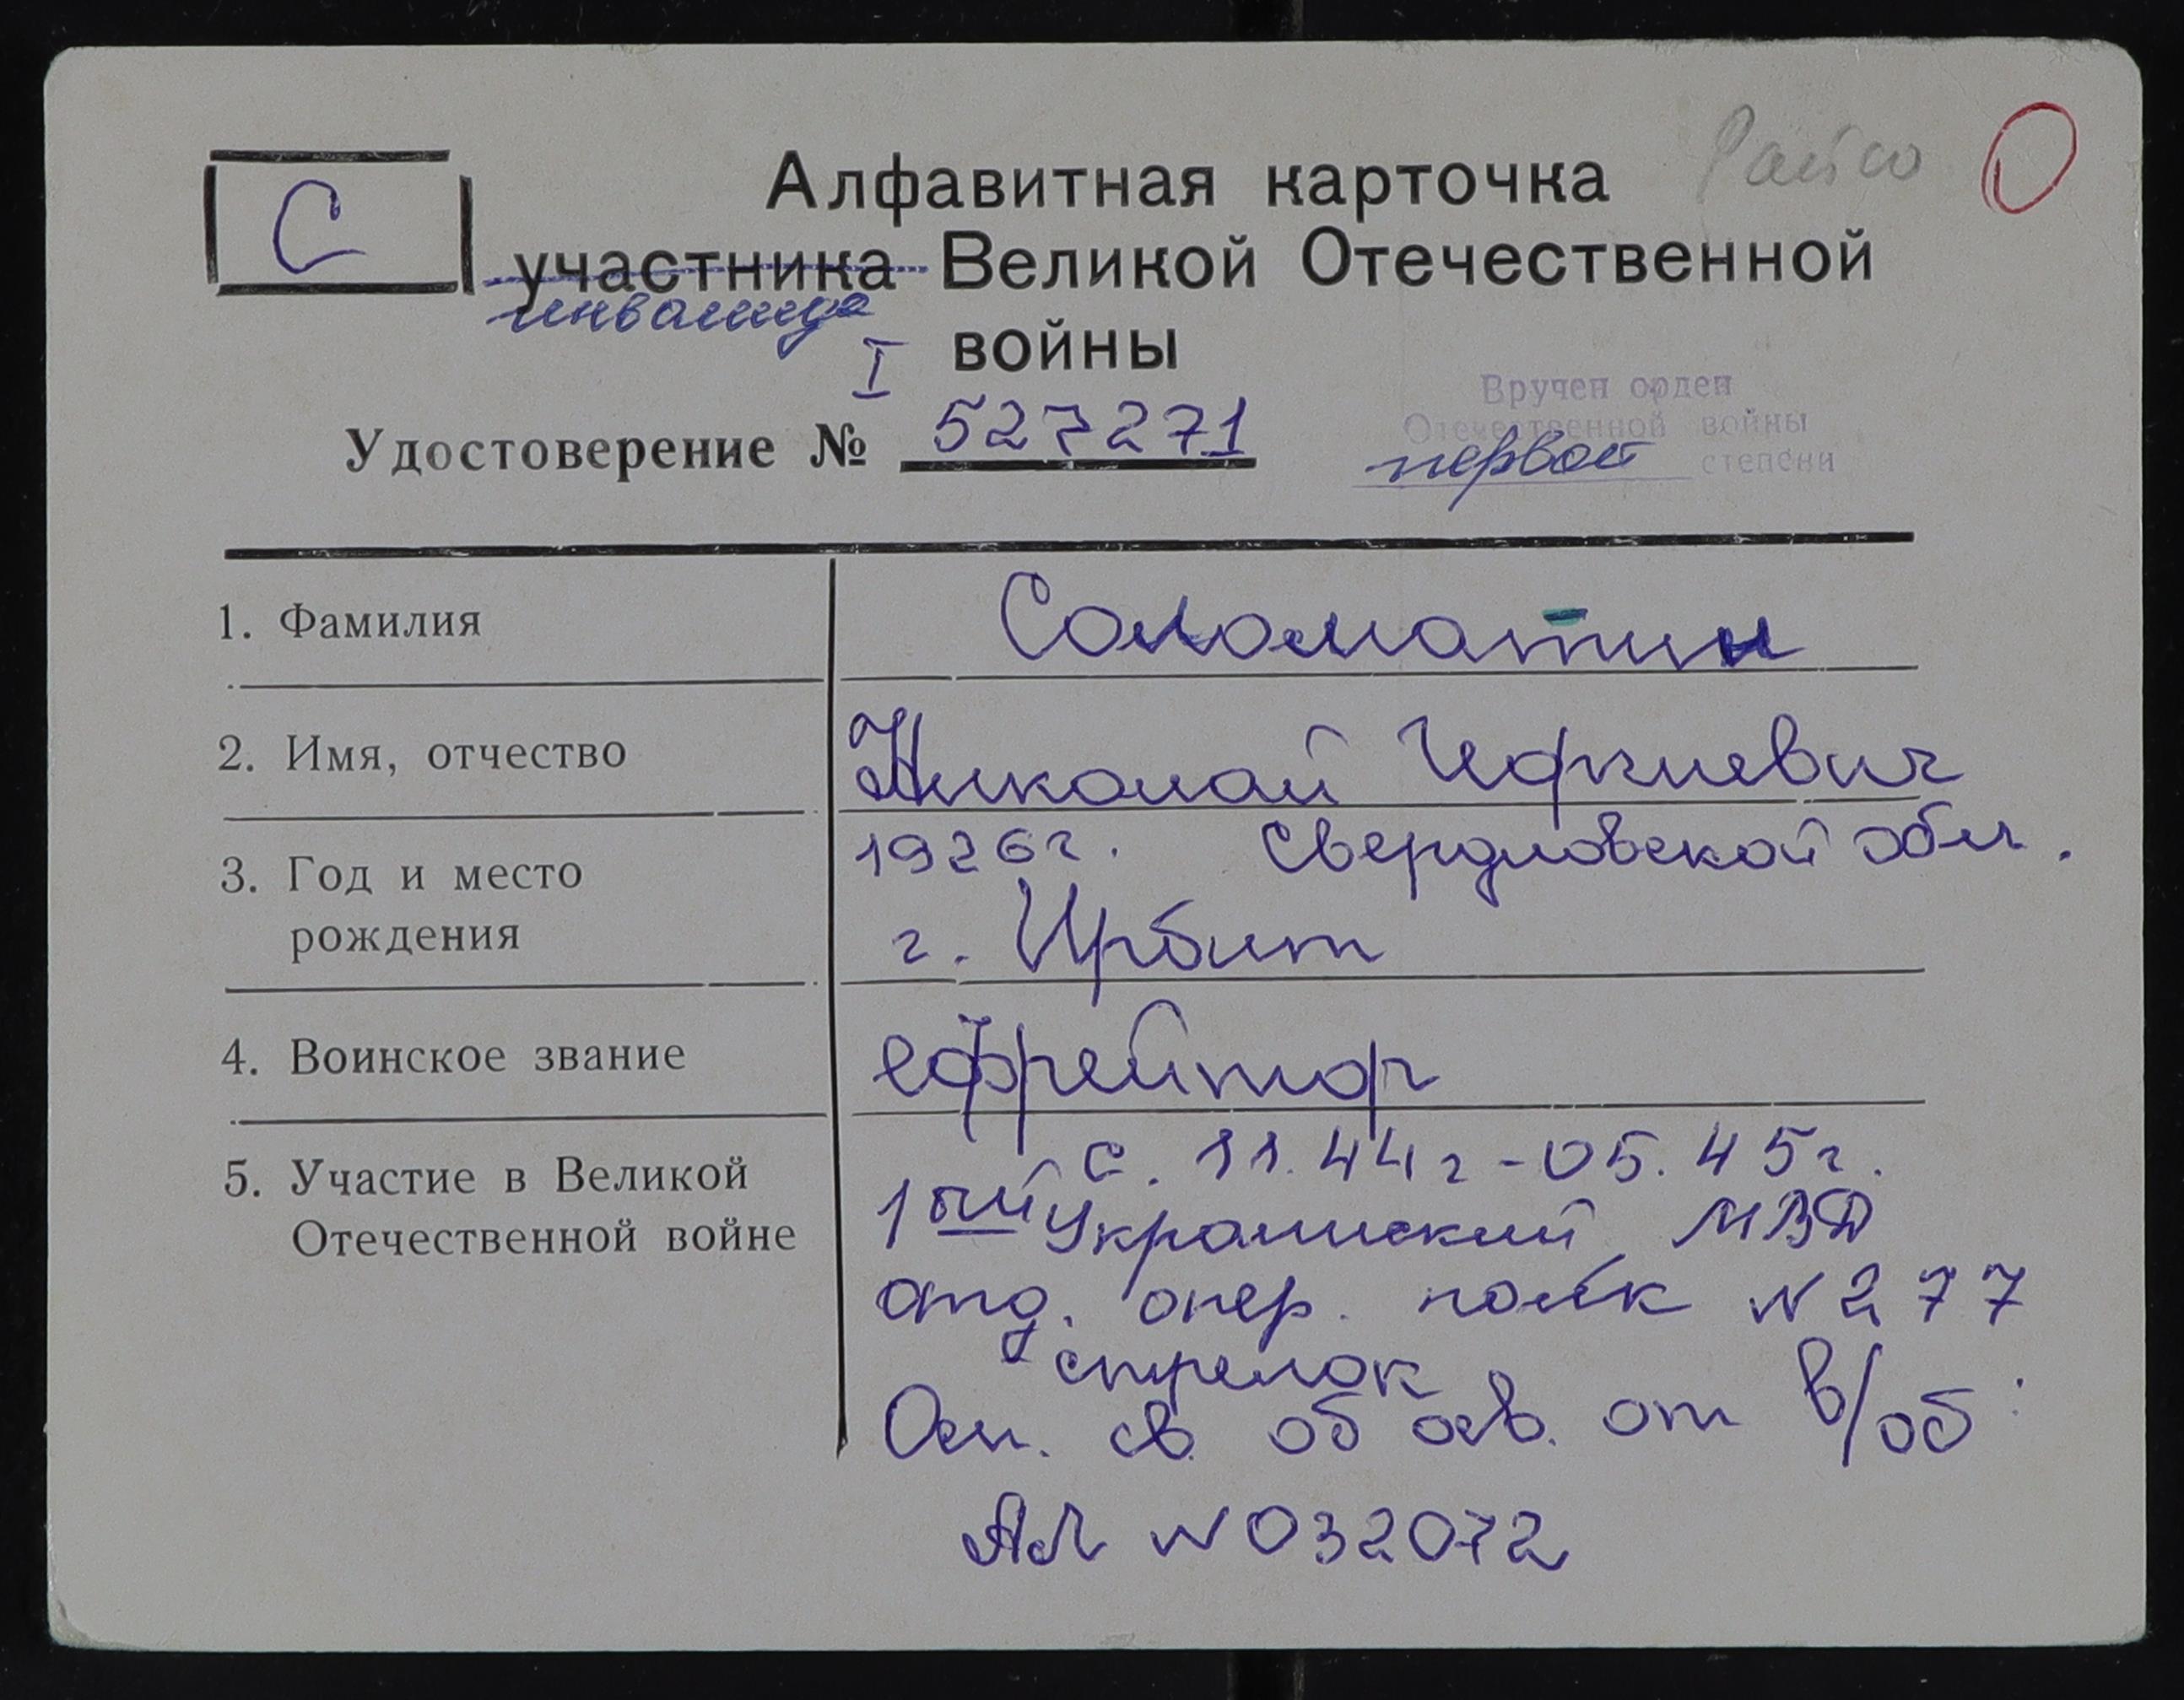 Райсо
О
С
Алфавитная карточка
участника Великой Отечественной
инвалида
войны
I
Удостоверение № 527271
Вручен орден
Отечественной войны
первой степени
1. Фамилия
Соломатин
2. Имя, отчество
Николай
3. Год и место
рождения
1926г. Свердловской обл.
г. Ирбит
4. Воинское звание
ефрейтор
5. Участие в Великой
Отечественной войне
с. 11.44г-05.45г.
1ый Украинский МВД
отд. опер. полк N277
стрелок
Осн. св. об осв. от в/об:
АЛ N032072